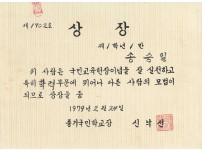 제1902호
상장
제1학년1반
송승일
위 사람은 국민교육헌장이념을 잘 실천하고
특히 학력부문에 뛰어나 다른 사람의 모범이
되므로 상장을 줌
1979년 2월 24일
홍기국민학교장 신낙선